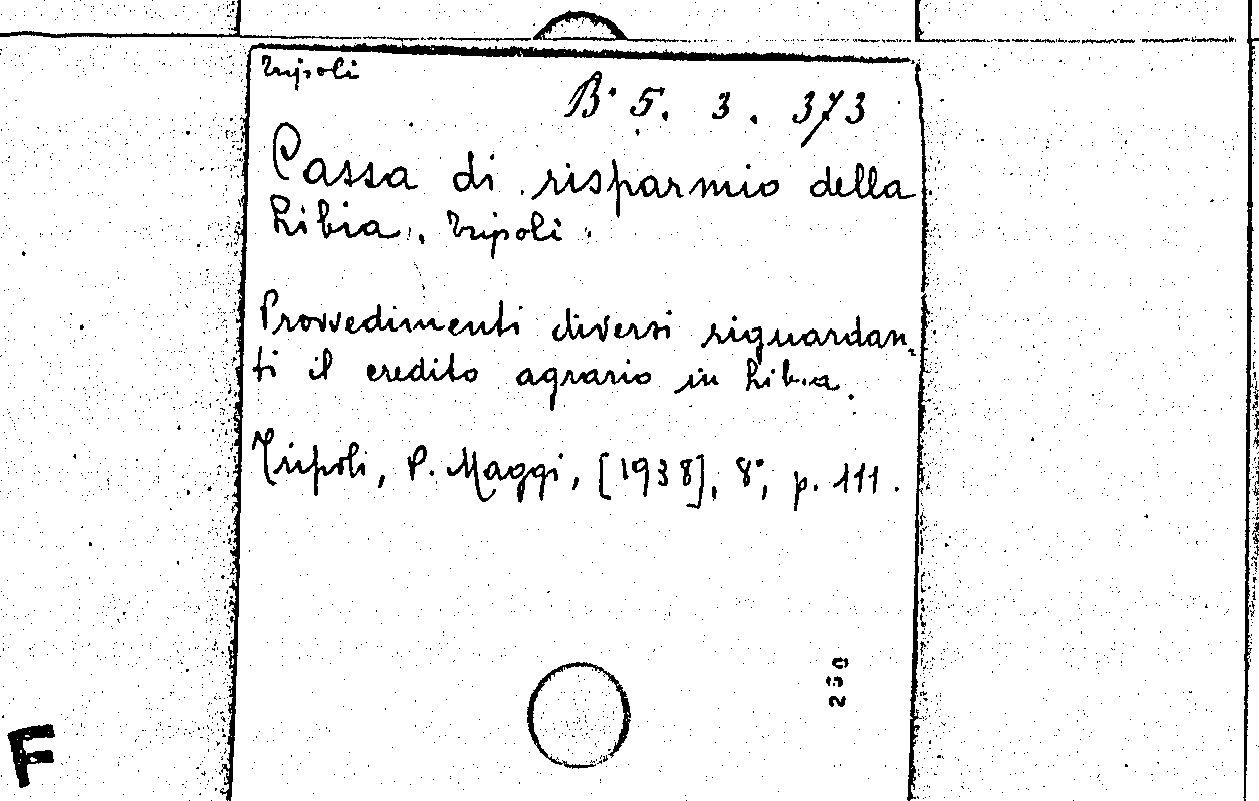 Tripoli
B. 5. 3. 373
Cassa di risparmio della
Libia, Tripoli.
Provvedimenti diversi riguardan-
ti il credito agrario in Libia.
Tripoli, P. Maggi, [1938], 8°, p. 111.
F